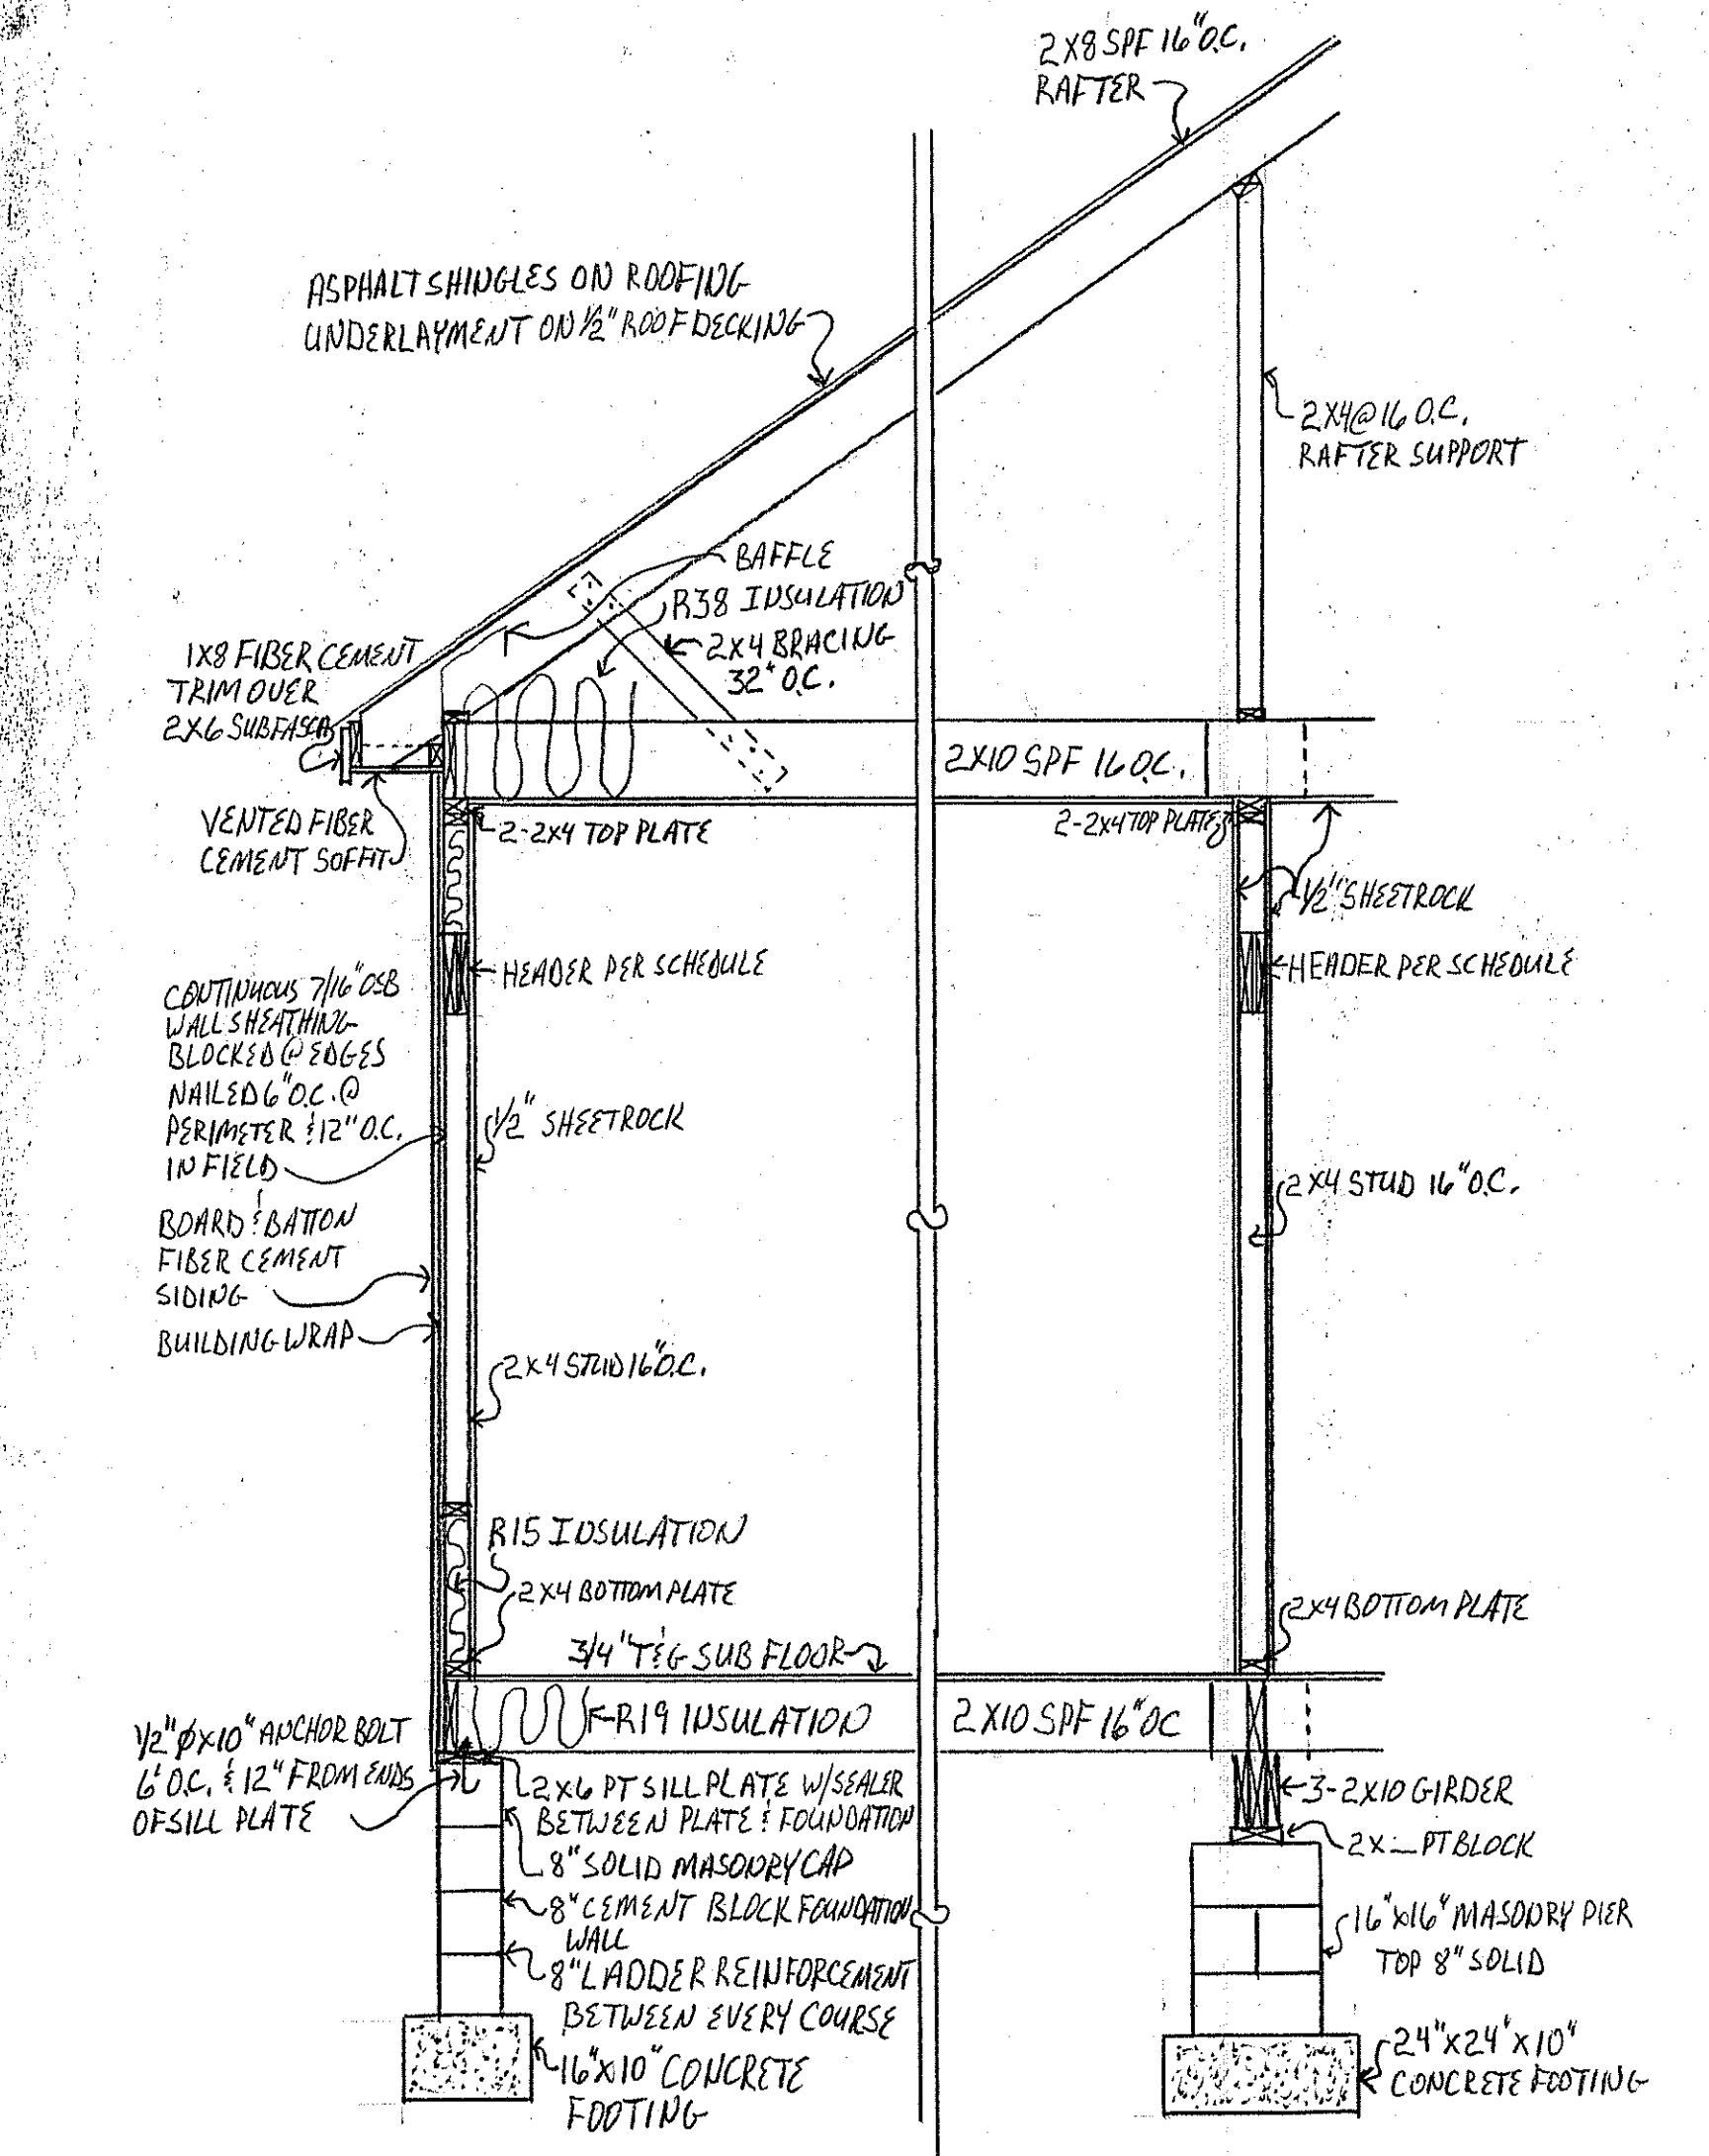 2X8 SPF 16" O.C.
RAFTER
ASPHALT SHINGLES ON ROOFING
UNDERLAYMENT ON 1/2" ROOF DECKING
2X4@16 O.C.
RAFTER SUPPORT
BAFFLE
R38 INSULATION
2X4 BRACING
32" O.C.
1X8 FIBER CEMENT
TRIM OVER
2X6 SUBFASCIA
2X10 SPF 16 O.C.
VENTED FIBER
CEMENT SOFFIT
2-2X4 TOP PLATE
2-2X4 TOP PLATE
1/2" SHEETROCK
HEADER PER SCHEDULE
HEADER PER SCHEDULE
CONTINUOUS 7/16" OSB
WALL SHEATHING
BLOCKED @ EDGES
NAILED 6" O.C. @
PERIMETER & 12" O.C.
IN FIELD
1/2" SHEETROCK
2X4 STUD 16" O.C.
BOARD & BATTON
FIBER CEMENT
SIDING
BUILDING WRAP
2X4 STUD 16" O.C.
R15 INSULATION
2X4 BOTTOM PLATE
2X4 BOTTOM PLATE
3/4" T&G SUB FLOOR
R19 INSULATION
2X10 SPF 16" OC
1/2" ØX10" ANCHOR BOLT
6' O.C. & 12" FROM ENDS
OF SILL PLATE
2X6 PT SILL PLATE W/SEALER
BETWEEN PLATE & FOUNDATION
3-2X10 GIRDER
2X_ PT BLOCK
8" SOLID MASONRY CAP
8" CEMENT BLOCK FOUNDATION
WALL
16"X16" MASONRY PIER
TOP 8" SOLID
8" LADDER REINFORCEMENT
BETWEEN EVERY COURSE
16"X10" CONCRETE
FOOTING
24"X24"X10"
CONCRETE FOOTING